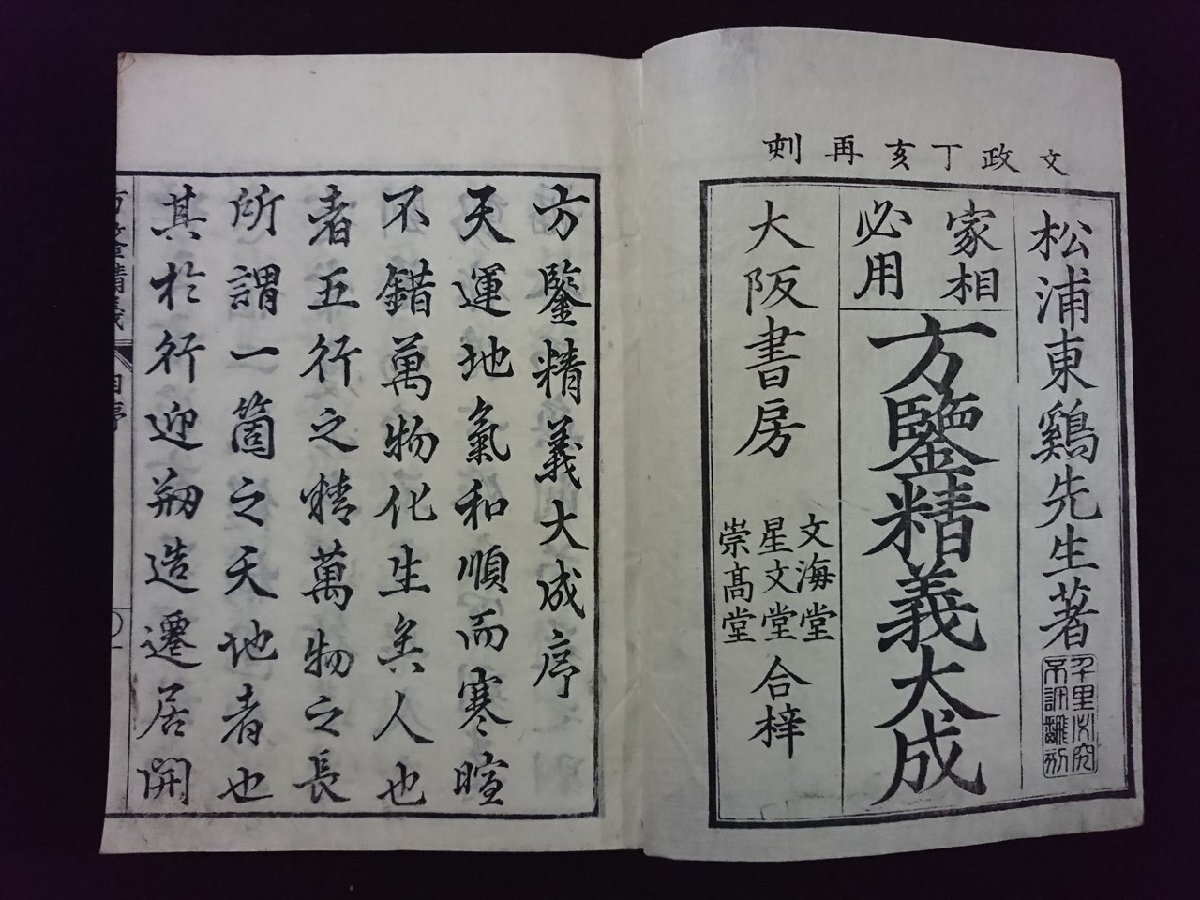 文政丁亥再刻
松浦東鷄先生著
家相
必用
方鑒精義大成
大阪書房
文海堂
星文堂
崇高堂
合梓
方鑒精義大成序
天運地氣和順而寒暄
不錯萬物化生矣人也
者五行之精萬物之長
所謂一箇之天地者也
其於行迎剏造遷居開